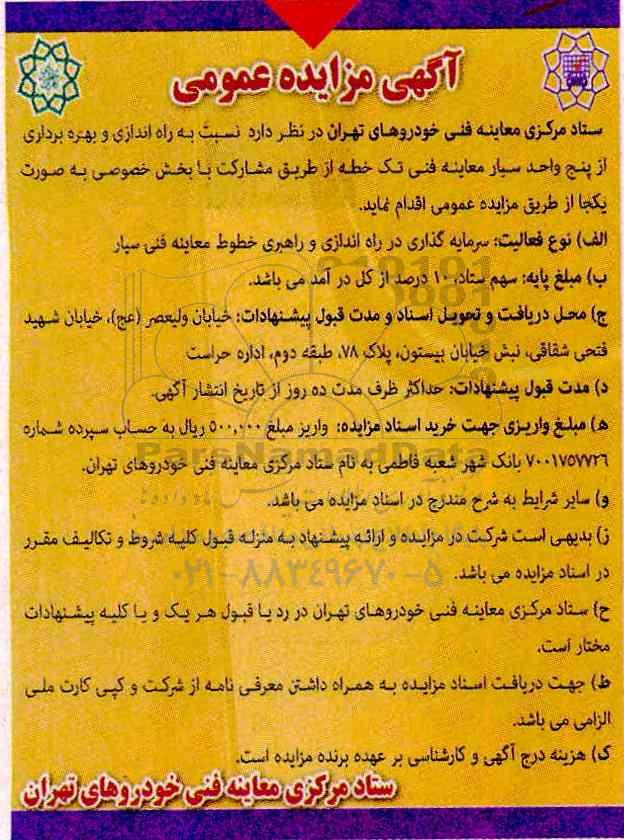 آگهی مزایده عمومی
ستاد مرکزی معاینه فنی خودروهای تهران در نظر دارد نسبت به راه اندازی و بهره برداری
از پنج واحد سیار معاینه فنی تک خطه از طریق مشارکت با بخش خصوصی به صورت
یکجا از طریق مزایده عمومی اقدام نماید.
الف) نوع فعالیت: سرمایه گذاری در راه اندازی و راهبری خطوط معاینه فنی سیار
ب) مبلغ پایه: سهم ستاد، ۱۰ درصد از کل در آمد می باشد.
ج) محل دریافت و تحویل اسناد و مدت قبول پیشنهادات: خیابان ولیعصر (عج)، خیابان شهید
فتحی شقاقی، نبش خیابان بیستون، پلاک ۷۸، طبقه دوم، اداره حراست
د) مدت قبول پیشنهادات: حداکثر ظرف مدت ده روز از تاریخ انتشار آگهی.
ه) مبلغ واریزی جهت خرید اسناد مزایده: واریز مبلغ ۵۰۰,۰۰۰ ریال به حساب سپرده شماره
۷۰۰۱۷۵۷۷۲۶ بانک شهر شعبه فاطمی به نام ستاد مرکزی معاینه فنی خودروهای تهران.
و) سایر شرایط به شرح مندرج در اسناد مزایده می باشد.
ز) بدیهی است شرکت در مزایده و ارائه پیشنهاد به منزله قبول کلیه شروط و تکالیف مقرر
در اسناد مزایده می باشد.
ح) ستاد مرکزی معاینه فنی خودروهای تهران در رد یا قبول هر یک و یا کلیه پیشنهادات
مختار است.
ط) جهت دریافت اسناد مزایده به همراه داشتن معرفی نامه از شرکت و کپی کارت ملی
الزامی می باشد.
ک) هزینه درج آگهی و کارشناسی بر عهده برنده مزایده است.
ستاد مرکزی معاینه فنی خودروهای تهران
ParsNamadData
۰۲۱-۸۸۳۴۹۶۷۰-۵